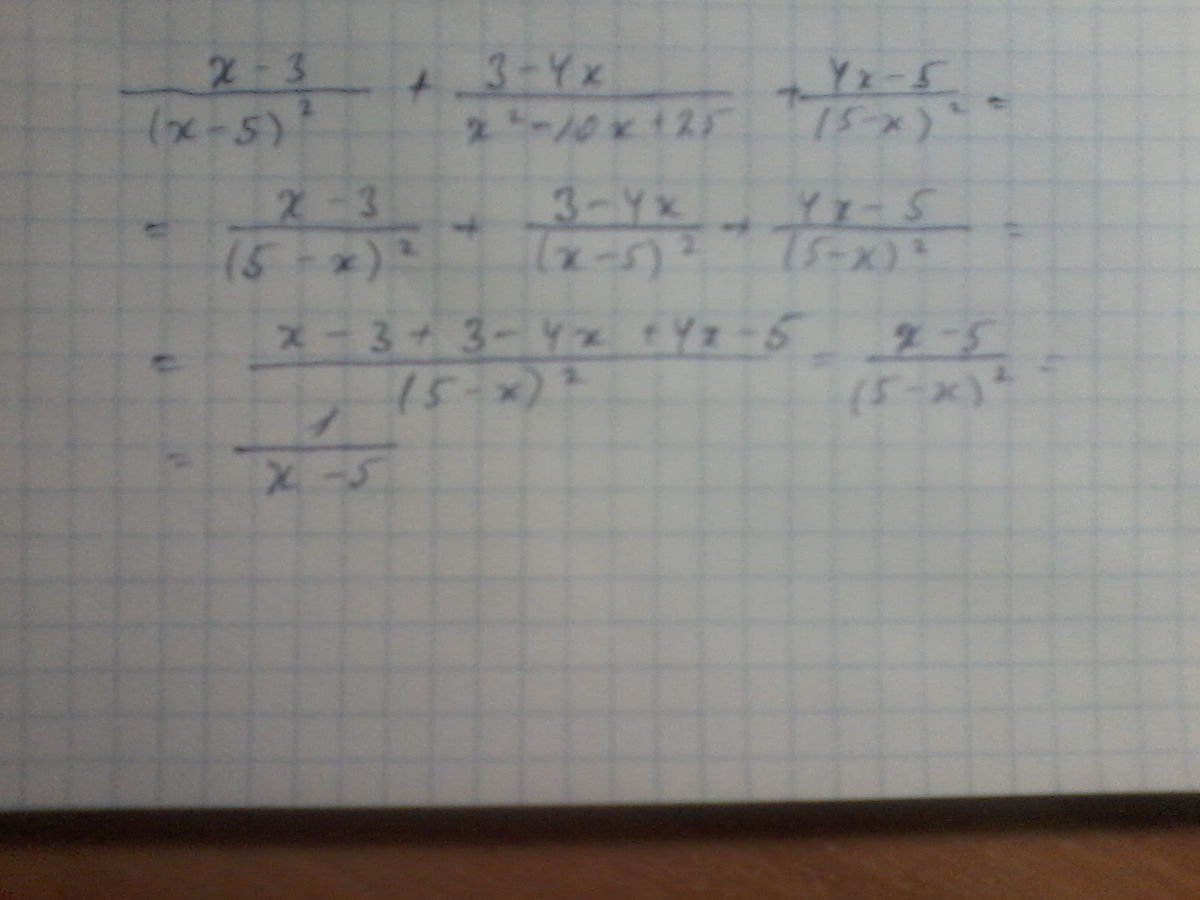 (x-3)/(x-5)² + (3-4x)/(x²-10x+25) + (4x-5)/(5-x)² =
= (x-3)/(5-x)² + (3-4x)/(x-5)² + (4x-5)/(5-x)² =
= (x-3+3-4x+4x-5)/(5-x)² = (x-5)/(5-x)² =
= 1/(x-5)